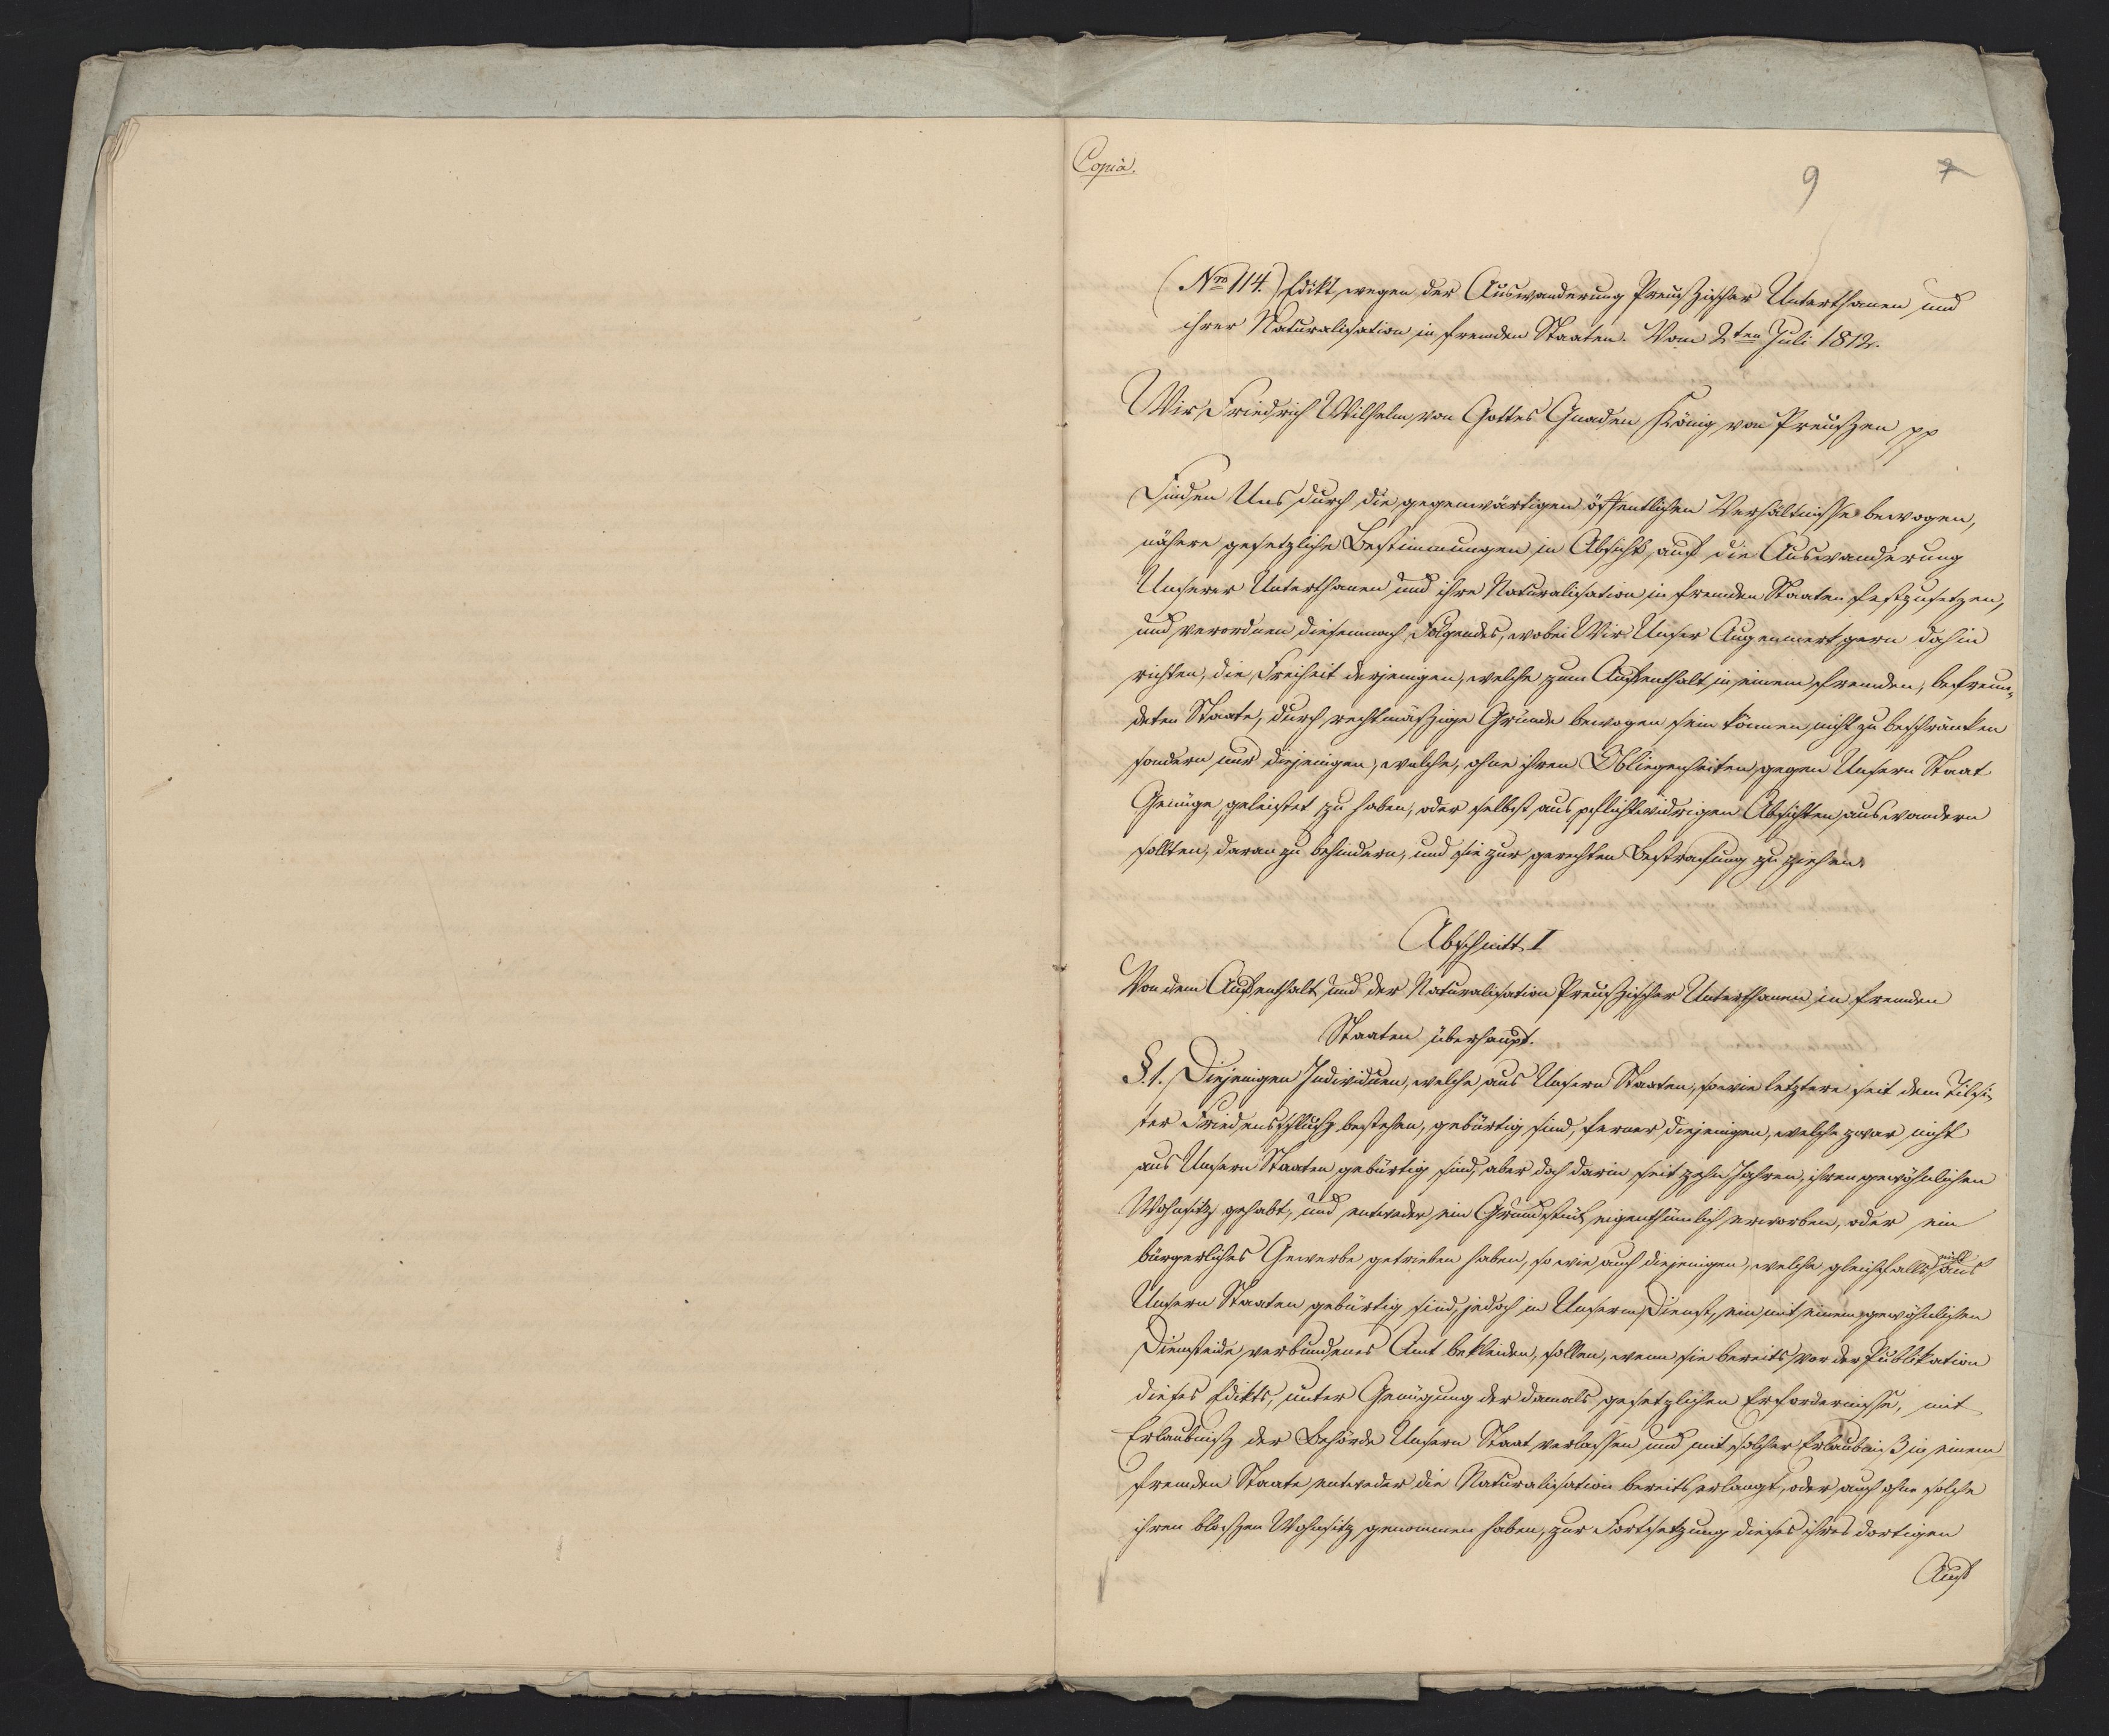 Copia.
9 7
(Nro 114.) Edikt, wegen der Auswanderung Preuszischer Unterthanen und
ihrer Naturalisation in fremden Staaten. Vom 2ten Juli 1812.
Wir Friedrich Wilhelm, von Gottes Gnaden König von Preuszen pp
Finden Uns durch die gegenwärtigen öffentlichen Verhältnisse bewogen,
nähere gesetzliche Bestimmungen in Absicht auf die Auswanderung
Unserer Unterthanen und ihre Naturalisation in fremden Staaten festzusetzen,
und verordnen diesemnach Folgendes, wobei Wir Unser Augenmerk gern dahin
richten, die Freiheit derjenigen, welche zum Aufenthalt in einem fremden, befreun-
deten Staate, durch rechtmäszige Gründe bewogen sein können, nicht zu beschränken
sondern nur diejenigen, welche, ohne ihren Obliegenheiten gegen Unsern Staat
Genüge geleistet zu haben, oder selbst aus pflichtwidrigen Absichten, auswandern
sollten, daran zu behindern, und sie zur gerechten Bestrafung zu ziehen.
Abschnitt I
Von dem Aufenthalt und der Naturalisation Preuszischer Unterthanen in fremden
Staaten überhaupt.
§. 1. Diejenigen Individuen, welche aus Unsern Staaten, sowie letztere seit dem Tilsi-
ter Friedensschlusz bestehen, gebürtig sind, ferner diejenigen, welche zwar nicht
aus Unsern Staaten gebürtig sind, aber doch darin seit zehn Jahren, ihren gewöhnlichen
Wohnsitz gehabt, und entweder ein Grundstück eigenthümlich erworben, oder ein
bürgerliches Gewerbe getrieben haben, so wie auch diejenigen, welche gleichfalls nicht aus
Unsern Staaten gebürtig sind, jedoch in Unserm Dienst, ein mit einem gewöhnlichen
Diensteide verbundenes Amt bekleiden, sollen, wenn sie bereits vor der Publikation
dieses Edikts, unter Genügung der damals gesetzlichen Erfordernisse, mit
Erlaubnisz der Behörde Unsern Staat verlassen und mit solcher Erlaubniß in einem
fremden Staate entweder die Naturalisation bereits erlangt, oder auch ohne solche
ihren bloszen Wohnsitz genommen haben, zur Fortsetzung dieses ihres dortigen
Auf